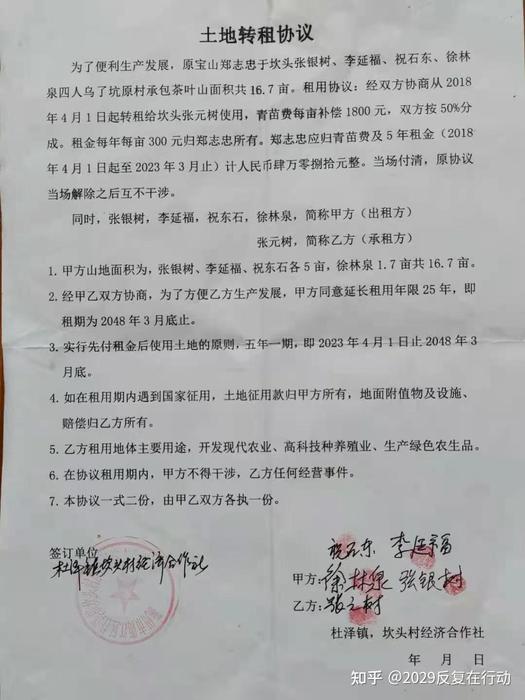 土地转租协议
为了便利生产发展，原宝山郑志忠于坎头张银树、李延福、祝石东、徐林
泉四人乌了坑原村承包茶叶山面积共 16.7 亩。租用协议：经双方协商从 2018
年 4 月 1 日起转租给坎头张元树使用，青苗费每亩补偿 1800 元，双方按 50%分
成。租金每年每亩 300 元归郑志忠所有。郑志忠应归青苗费及 5 年租金（2018
年 4 月 1 日起至 2023 年 3 月止）计人民币肆万零捌拾元整。当场付清，原协议
当场解除之后互不干涉。
同时，张银树，李延福，祝东石，徐林泉，简称甲方（出租方）
张元树，简称乙方（承租方）
1. 甲方山地面积为，张银树、李延福、祝东石各 5 亩，徐林泉 1.7 亩共 16.7 亩。
2. 经甲乙双方协商，为了方便乙方生产发展，甲方同意延长租用年限 25 年，即
租期为 2048 年 3 月底止。
3. 实行先付租金后使用土地的原则，五年一期，即 2023 年 4 月 1 日止 2048 年 3
月底。
4. 如在租用期内遇到国家征用，土地征用款归甲方所有，地面附值物及设施、
赔偿归乙方所有。
5. 乙方租用地体主要用途，开发现代农业、高科技种养殖业、生产绿色农生品。
6. 在协议租用期内，甲方不得干涉，乙方任何经营事件。
7. 本协议一式二份，由甲乙双方各执一份。
签订单位
杜泽镇坎头村经济合作社
祝石东 李延福
甲方：徐林泉 张银树
乙方：张元树
杜泽镇，坎头村经济合作社
年 月 日
知乎 @2029反复在行动